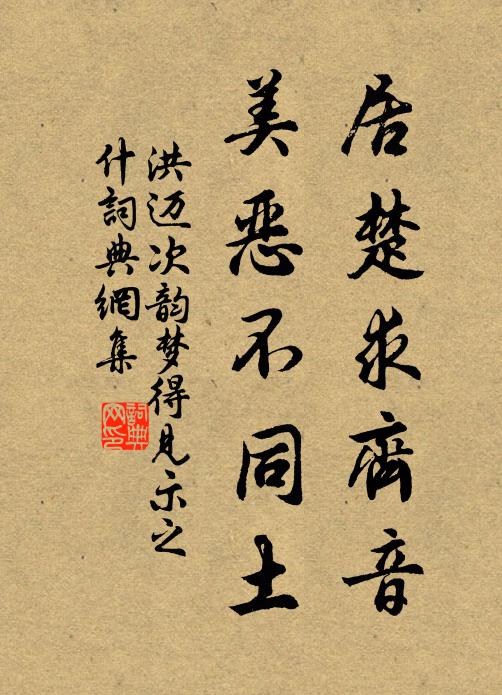 居楚求齊音
美惡不同土
洪迈次韵梦得见示之
什詞典網集
詞典
网印